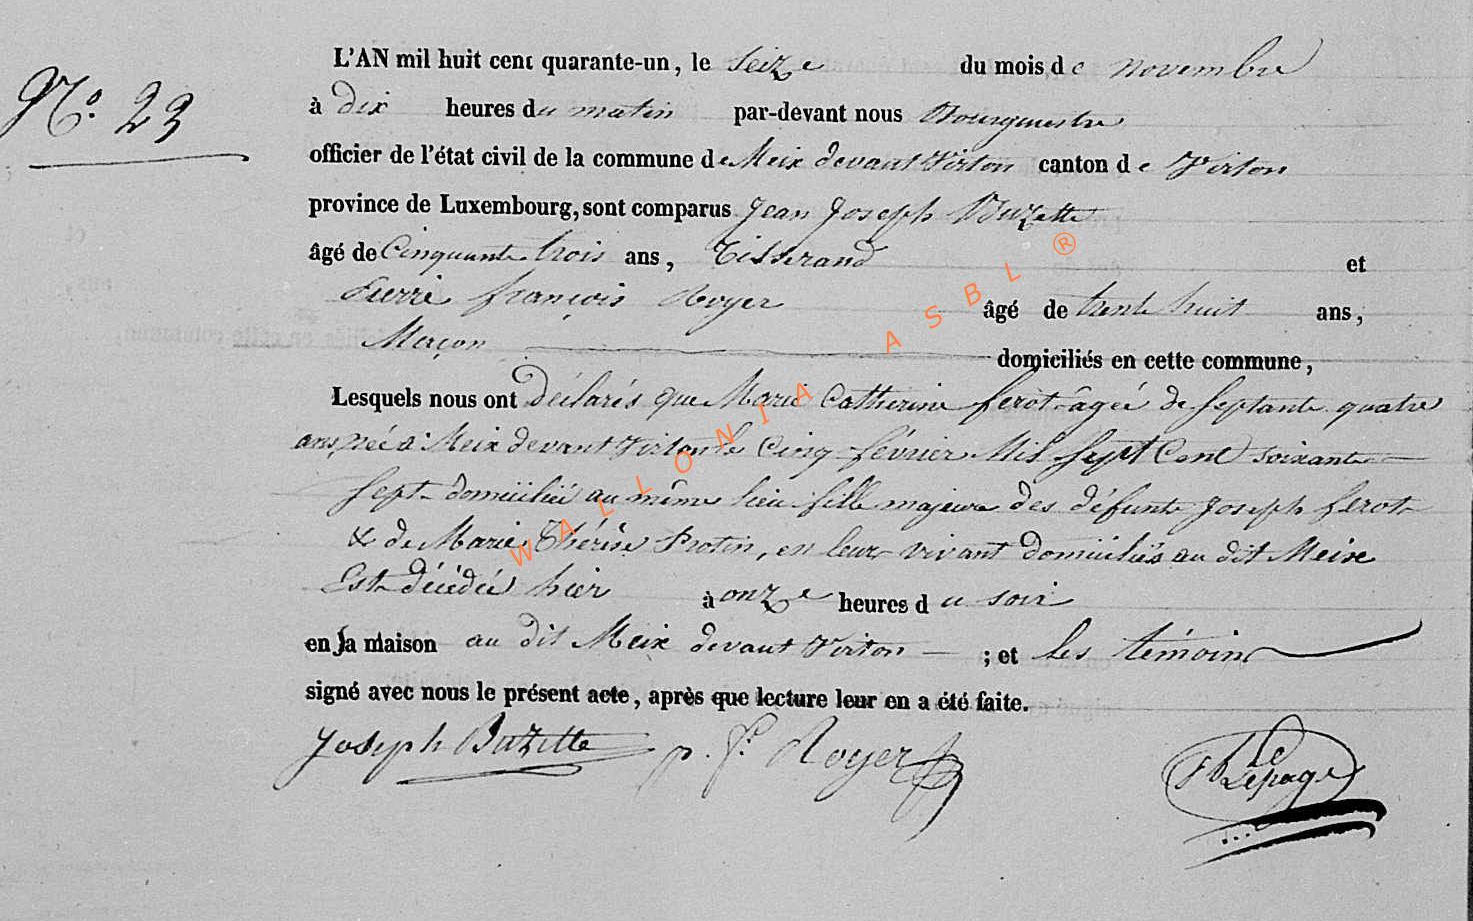 N.º 23
L'AN mil huit cent quarante-un, le Seize du mois de novembre
à dix heures du matin par-devant nous Bourgmestre
officier de l'état civil de la commune de Meix devant Virton canton de Virton
province de Luxembourg, sont comparus Jean Joseph Buzette
âgé de Cinquante trois ans, Tisserand et
Pierre françois Royer âgé de trente huit ans,
Maçon domiciliés en cette commune,
Lesquels nous ont déclarés que Marie Catherine ferot âgée de septante quatre
ans, née à Meix devant Virton le Cinq février Mil Sept Cent soixante
sept domiciliée au même lieu fille majeure des défunts Joseph ferot
& de Marie Thérèse Protin, en leur vivant domiciliés au dit Meix
Est décédée hier à onze heures du soir
en sa maison au dit Meix devant Virton ; et les témoins
signé avec nous le présent acte, après que lecture leur en a été faite.
Joseph Buzette p. fs. Royer Lepage
WALLONIA ASBL ®